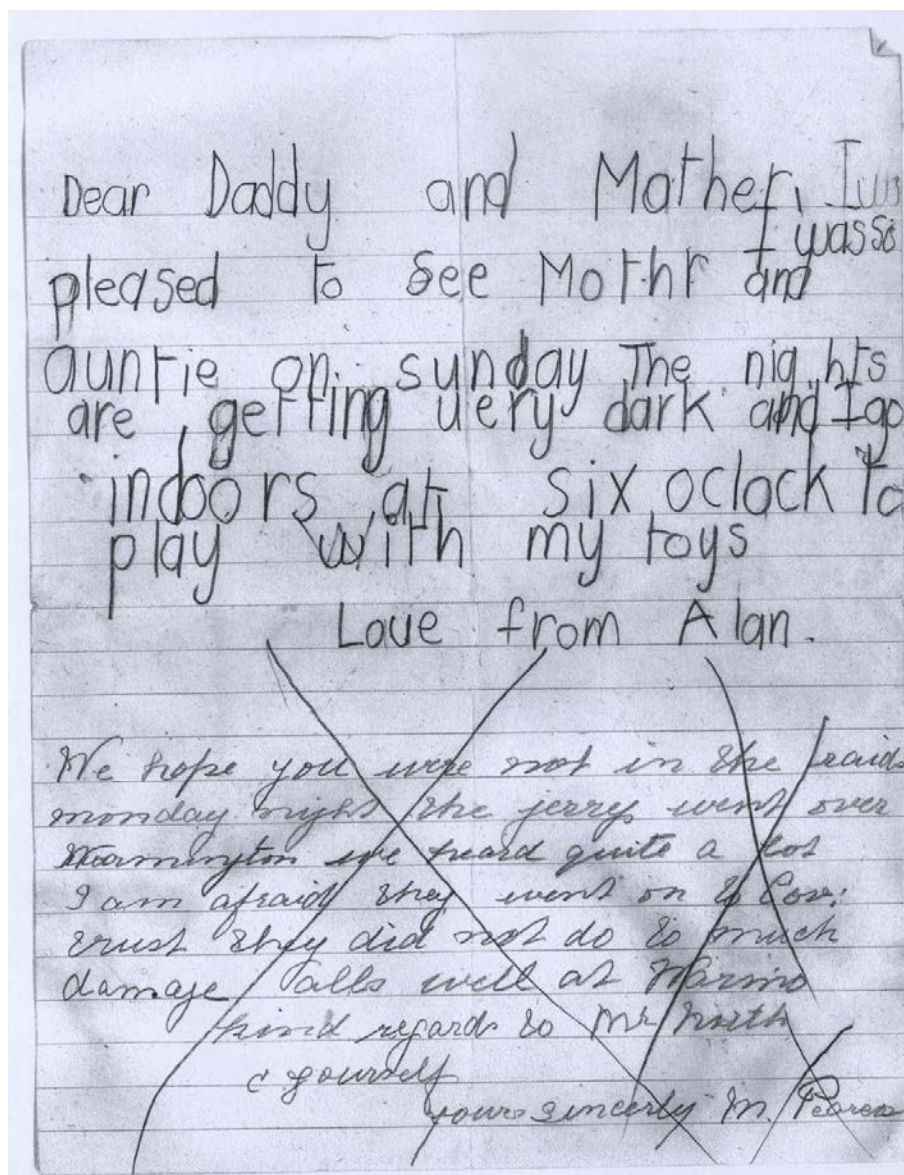 Dear Daddy and Mother, I was
I was so
pleased to see Mothr and
auntie on sunday The nights
are getting very dark and I go
indoors at six oclock to
play with my toys
Love from Alan.
We hope you were not in the raids
monday night the jerrys went over
Warmington we heard quite a lot
I am afraid they went on to Cov:
trust they did not do to much
damage alls well at Warmino
kind regards to Mr North
& yourself
yours sincerly M.